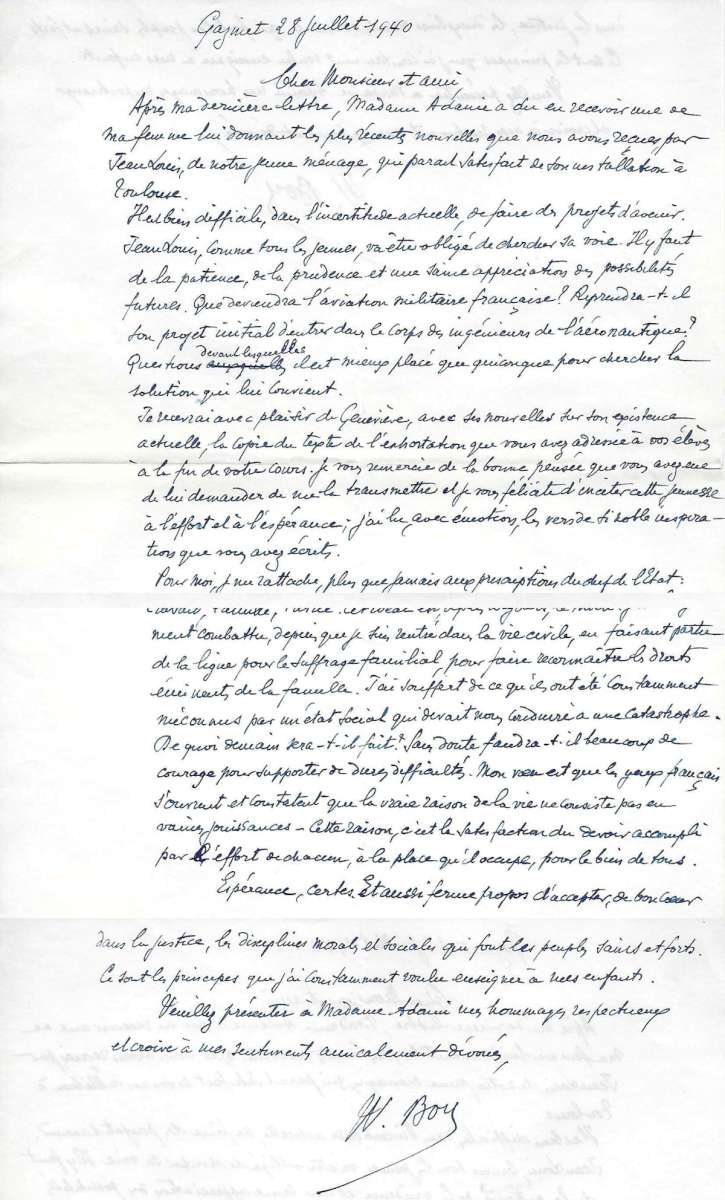 Gazinet 28 Juillet 1940
Cher Monsieur et ami
Après ma dernière lettre, Madame Adami a dû en recevoir une de
ma femme lui donnant les plus récentes nouvelles que nous avons reçues par
Jean Louis, de notre jeune ménage, qui paraît satisfait de son installation à
Toulouse.
Il est bien difficile, dans l'incertitude actuelle, de faire des projets d'avenir.
Jean Louis, comme tous les jeunes, va être obligé de chercher sa voie. Il y faut
de la patience, de la prudence et une saine appréciation des possibilités
futures. Que deviendra l'aviation militaire française? Reprendra-t-il
son projet initial d'entrer dans le corps des ingénieurs de l'aéronautique?
Questions devant lesquelles il est mieux placé que quiconque pour chercher la
solution qui lui convient.
Je recevrai avec plaisir de Geneviève, avec ses nouvelles sur son existence
actuelle, la copie du texte de l'exhortation que vous avez adressée à vos élèves
à la fin de votre cours. Je vous remercie de la bonne pensée que vous avez eue
de lui demander de me la transmettre et je vous félicite d'inciter cette jeunesse
à l'effort et à l'espérance; j'ai lu, avec émotion, les vers de si noble inspira-
tion que vous avez écrits.
Pour moi, je me rattache, plus que jamais aux prescriptions du chef de l'Etat:
Travail, Famille, Patrie.
ment combattu, depuis que je suis rentré dans la vie civile, en faisant partie
de la ligue pour le suffrage familial, pour faire reconnaître les droits
éminents de la famille. J'ai souffert de ce qu'ils ont été constamment
méconnus par un état social qui devait nous conduire à une catastrophe.
De quoi demain sera-t-il fait? Sans doute faudra-t-il beaucoup de
courage pour supporter de dures difficultés. Mon vœu est que les yeux français
s'ouvrent et constatent que la vraie raison de la vie ne consiste pas en
vaines jouissances - Cette raison, c'est la satisfaction du devoir accompli
par l'effort de chacun, à la place qu'il occupe, pour le bien de tous.
Espérance, certes. Et aussi ferme propos d'accepter, de bon cœur
dans la justice, les disciplines morales et sociales qui font les peuples sains et forts.
Ce sont les principes que j'ai constamment voulu enseigner à mes enfants.
Veuillez présenter à Madame Adami mes hommages respectueux
et croire à mes sentiments amicalement dévoués,